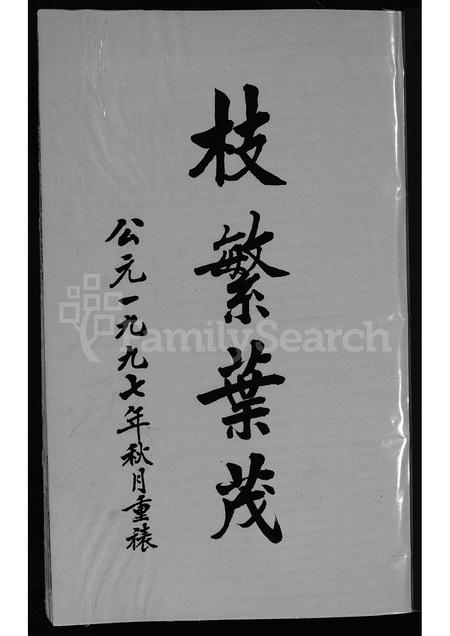 枝繁葉茂
公元一九九七年秋月重裱
FamilySearch